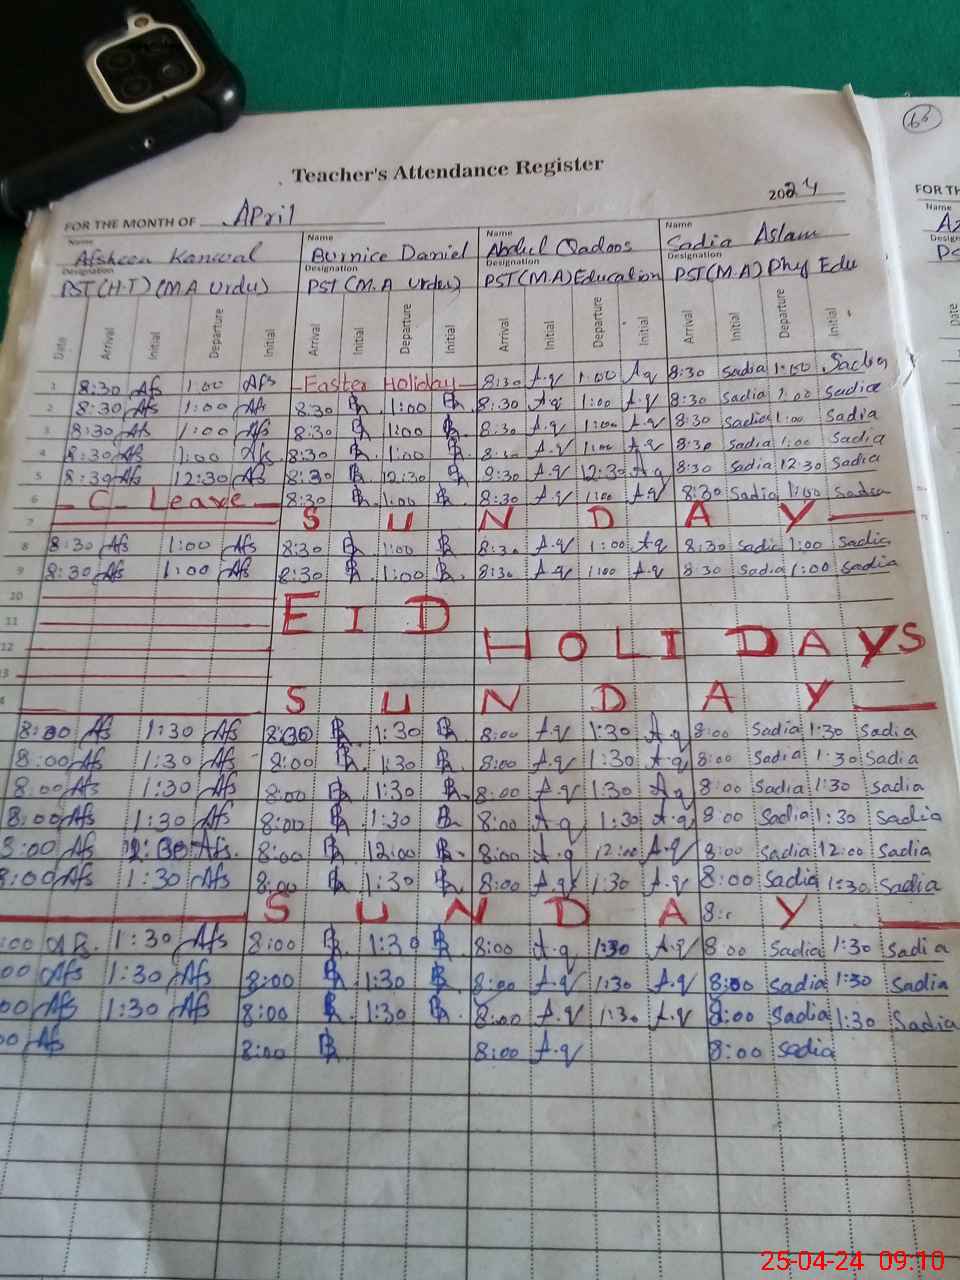 66
Teacher's Attendance Register
2024
FOR THE MONTH OF April
FOR TH
Name Name Name Name Name
Afsheen Kanwal Burnice Daniel Abdul Qadoos Sadia Aslam Az
Designation Designation Designation Designation
PST(H.T) (M.A Urdu) PST (M.A Urdu) PST(M.A) Education PST(M.A) Phy Edu
Date Arrival Initial Departure Initial Arrival Initial Departure Initial Arrival Initial Departure Initial Arrival Initial Departure Initial Date
1 8:30 Afs 1:00 Afs Easter Holiday 8:30 A.q 1:00 A q 8:30 Sadia 1:00 Sadia
2 8:30 Afs 1:00 Afs 8:30 1:00 8:30 A.q 1:00 A.q 8:30 Sadia 1:00 Sadia
3 8:30 Afs 1:00 Afs 8:30 1:00 8:30 A.q 1:00 A.q 8:30 Sadia 1:00 Sadia
4 8:30 Afs 1:00 Afs 8:30 1:00 8:30 A.q 1:00 A.q 8:30 Sadia 1:00 Sadia
5 8:30 Afs 12:30 Afs 8:30 12:30 8:30 A.q 12:30 A q 8:30 Sadia 12:30 Sadia
6 C Leave 8:30 1:00 8:30 A.q 1:00 A.q 8:30 Sadia 1:00 Sadia
7 S U N D A Y
8 8:30 Afs 1:00 Afs 8:30 1:00 8:30 A.q 1:00 A.q 8:30 Sadia 1:00 Sadia
9 8:30 Afs 1:00 Afs 8:30 1:00 8:30 A.q 1:00 A.q 8:30 Sadia 1:00 Sadia
10
11 E I D
12 H O L I D A Y S
3
4 S U N D A Y
8:00 Afs 1:30 Afs 1:30 8:00 A.q 1:30 A q 8:00 Sadia 1:30 Sadia
8:00 Afs 1:30 Afs 8:00 1:30 8:00 A.q 1:30 A.q 8:00 Sadia 1:30 Sadia
8:00 Afs 1:30 Afs 8:00 1:30 8:00 A.q 1:30 A q 8:00 Sadia 1:30 Sadia
8:00 Afs 1:30 Afs 8:00 1:30 8:00 A q 1:30 A.q 8:00 Sadia 1:30 Sadia
8:00 Afs Afs. 8:00 12:00 8:00 A.q 12:00 A.q 8:00 Sadia 12:00 Sadia
8:00 Afs 1:30 Afs 8:00 1:30 8:00 A.q 1:30 A.q 8:00 Sadia 1:30 Sadia
S U N D A Y
:00 Afs. 1:30 Afs 8:00 1:30 8:00 A.q 1:30 A.q 8:00 Sadia 1:30 Sadia
00 Afs 1:30 Afs 8:00 1:30 8:00 A.q 1:30 A.q 8:00 Sadia 1:30 Sadia
00 Afs 1:30 Afs 8:00 1:30 8:00 A.q 1:30 A.q 8:00 Sadia 1:30 Sadia
00 Afs 8:00 8:00 A.q 8:00 Sadia
25-04-24 09:10